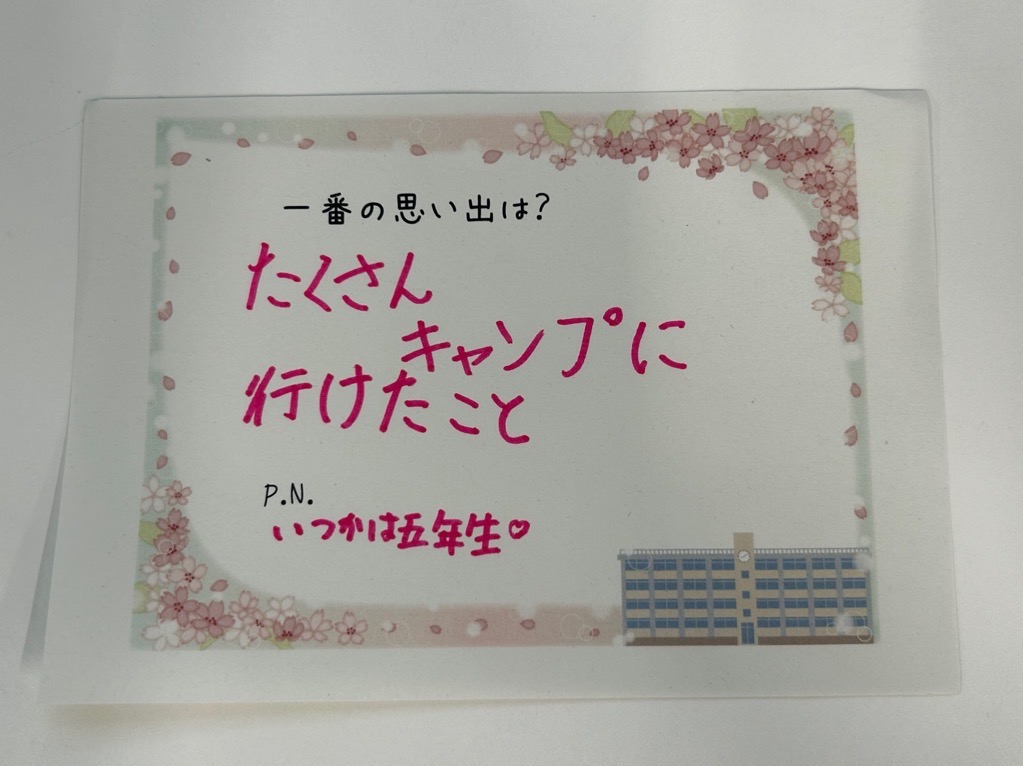 一番の思い出は?
たくさん
キャンプに
行けたこと
P.N.
いつかは五年生♡